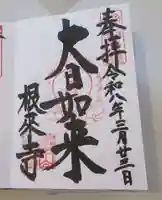 奉拝 令和八年二月廿三日
大日如来
根来寺